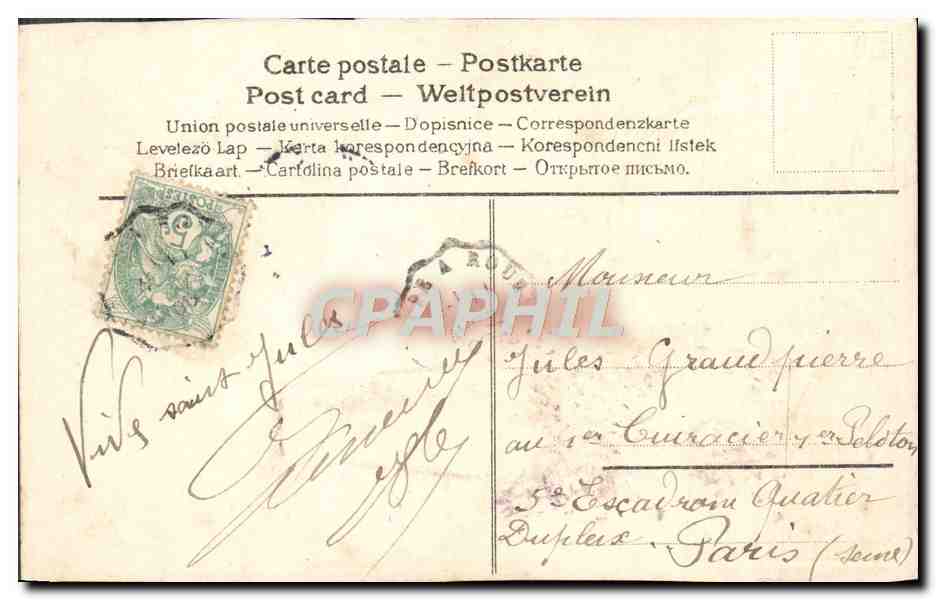 Carte postale – Postkarte
Post card – Weltpostverein
Union postale universelle – Dopisnice – Correspondenzkarte
Levelezö Lap – Karta korespondencyjna – Korespondencni lístek
Briefkaart – Cartolina postale – Brefkort – Открытое письмо.
POSTES
5
BE A ROU
CPAPHIL
Vive saint Jules
Monsieur
Jules Grandpierre
au 1er Cuiracier 4er Peloton
5e Escadrom Quatier
Dupleix. Paris (seine)